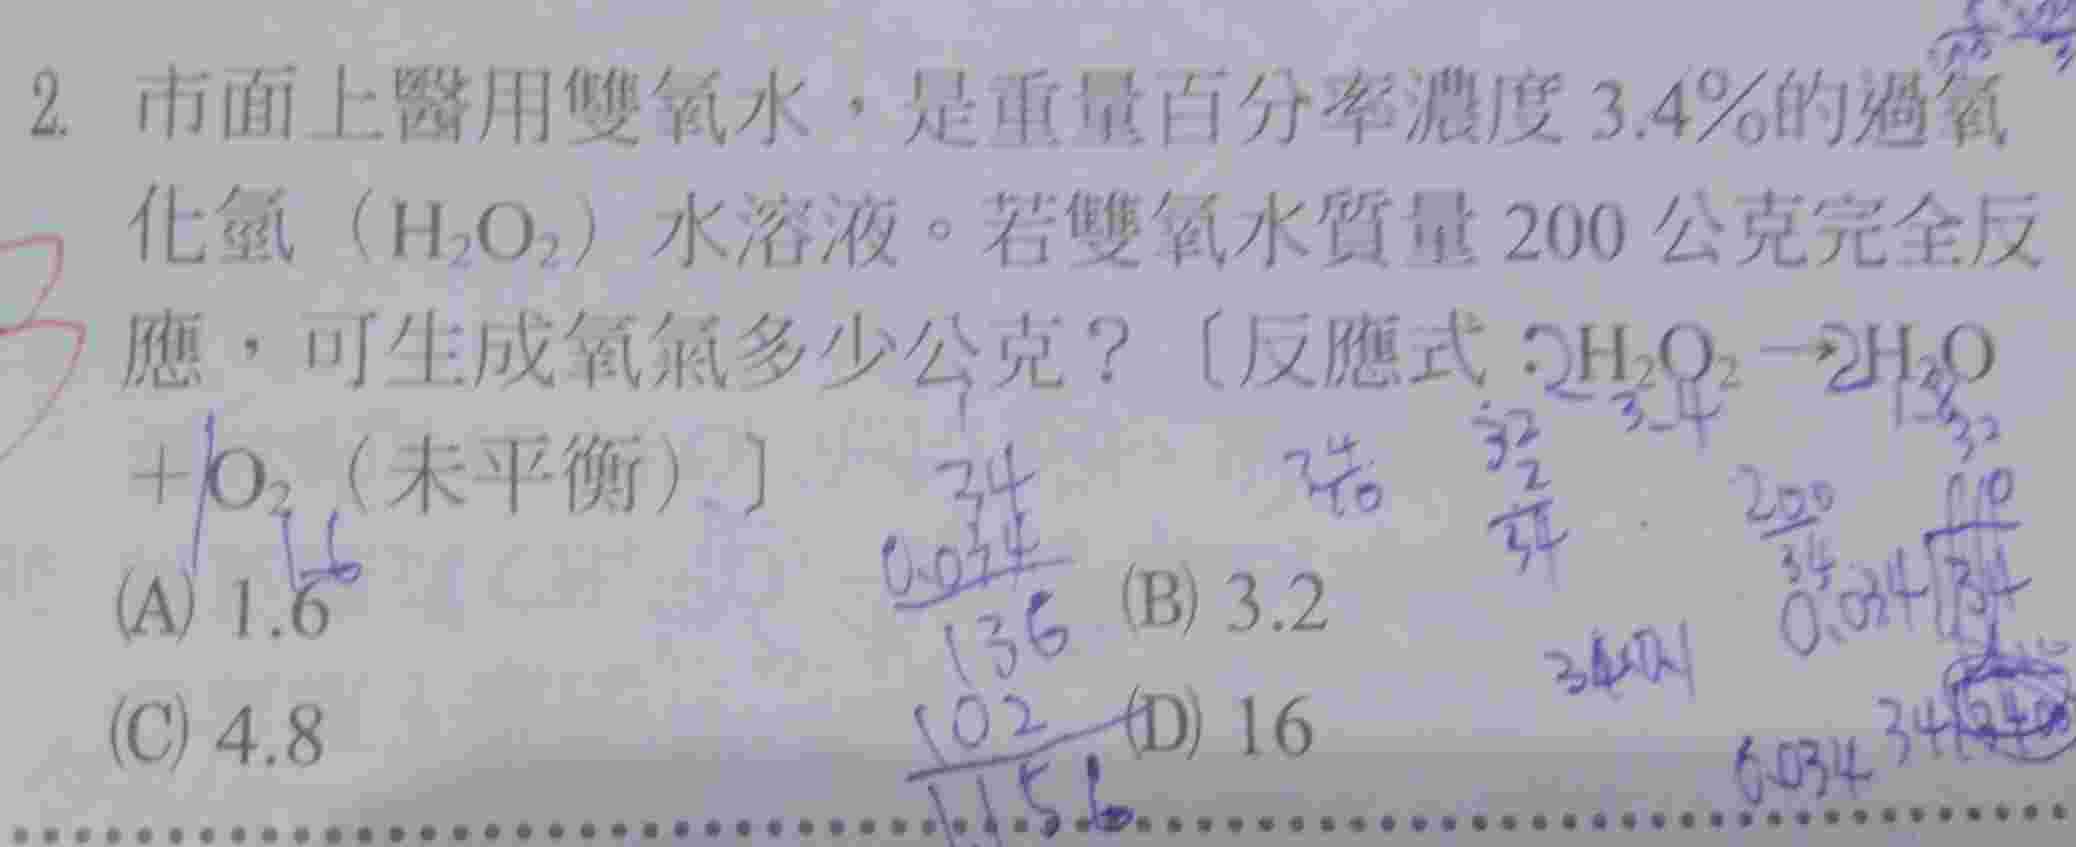 2. 市面上醫用雙氧水，是重量百分率濃度 3.4%的過氧
化氫（H₂O₂）水溶液。若雙氧水質量 200 公克完全反
應，可生成氧氣多少公克？〔反應式：2H₂O₂→2H₂O
+ O₂（未平衡）〕
34
0.034
136
102
1156
32
2
34
200
34
110
0.034
34
(A) 1.6 (B) 3.2
(C) 4.8 (D) 16
0.034
34